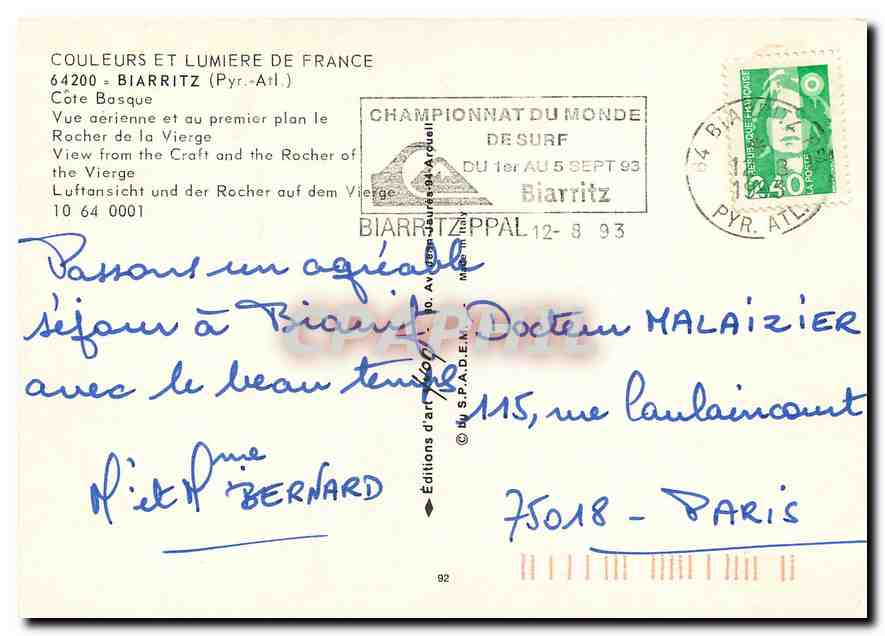 COULEURS ET LUMIERE DE FRANCE
64200 - BIARRITZ (Pyr.-Atl.)
Côte Basque
Vue aérienne et au premier plan le
Rocher de la Vierge
View from the Craft and the Rocher of
the Vierge
Luftansicht und der Rocher auf dem Vierge
10 64 0001
CHAMPIONNAT DU MONDE
DE SURF
DU 1er AU 5 SEPT 93
Biarritz
BIARRITZ PPAL 12-8 93
64 BIA
PYR. ATL.
REPUBLIQUE FRANÇAISE
2,50
LA POSTE
Passons un agréable
séjour à Biarritz
avec le beau temps
M. et Mme BERNARD
Editions d'art
80. Av. Jean-Jaurès-94-Arcueil
© by S.P.A.D.E.M. - Made in Italy
Docteur MALAIZIER
115, rue Caulaincourt
75018 - PARIS
92
CPAPHIL